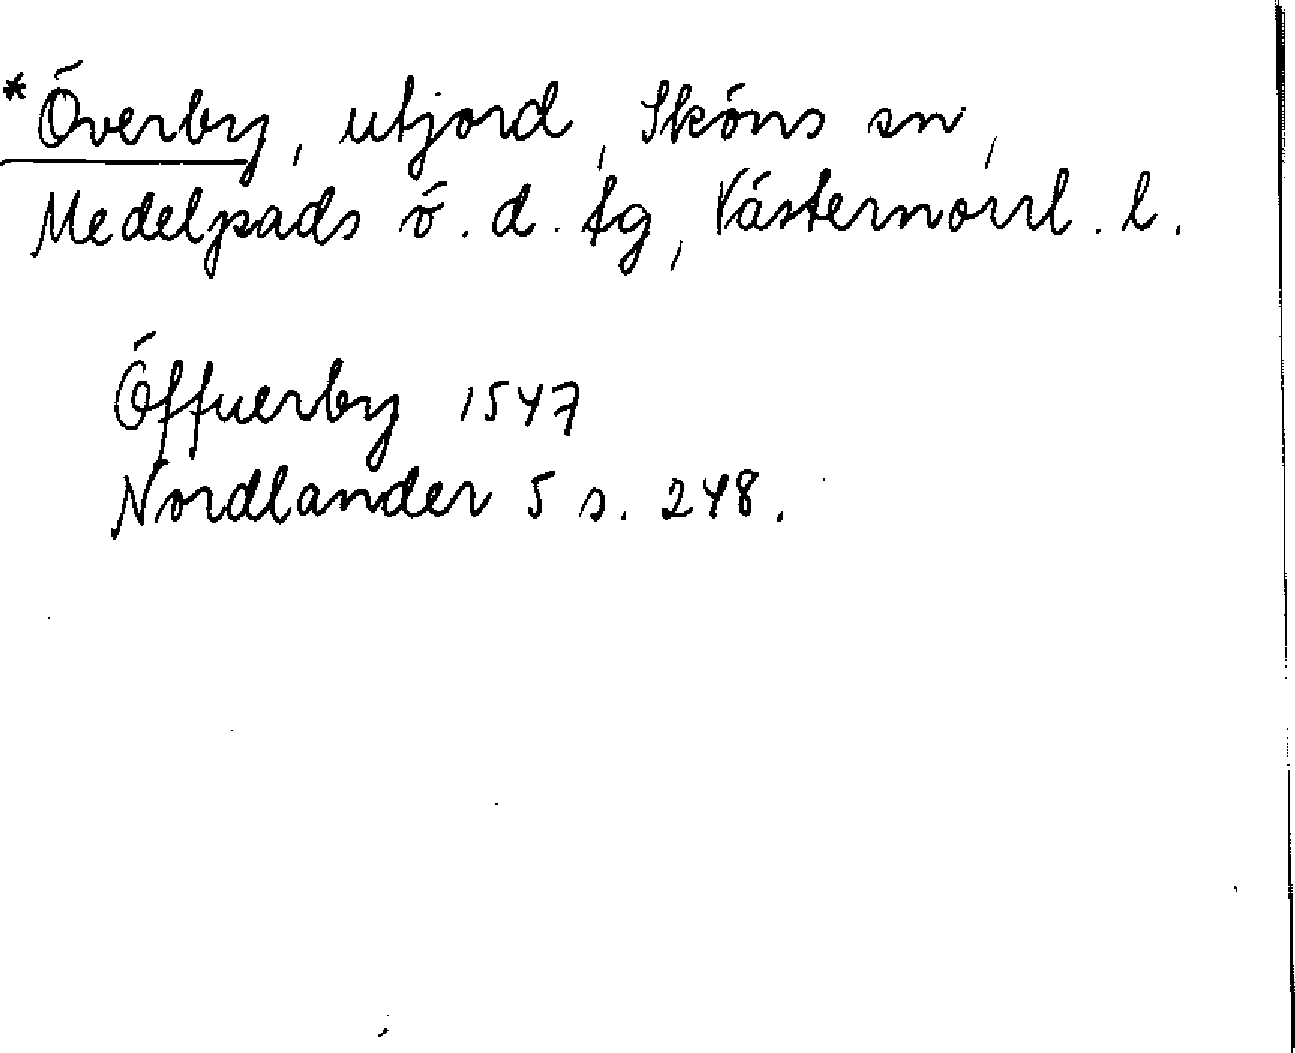 *Överby, utjord, Sköns sn,
Medelpads ö. d. tg, Västernorrl. l.
Öffuerby 1547
Nordlander 5 s. 248.